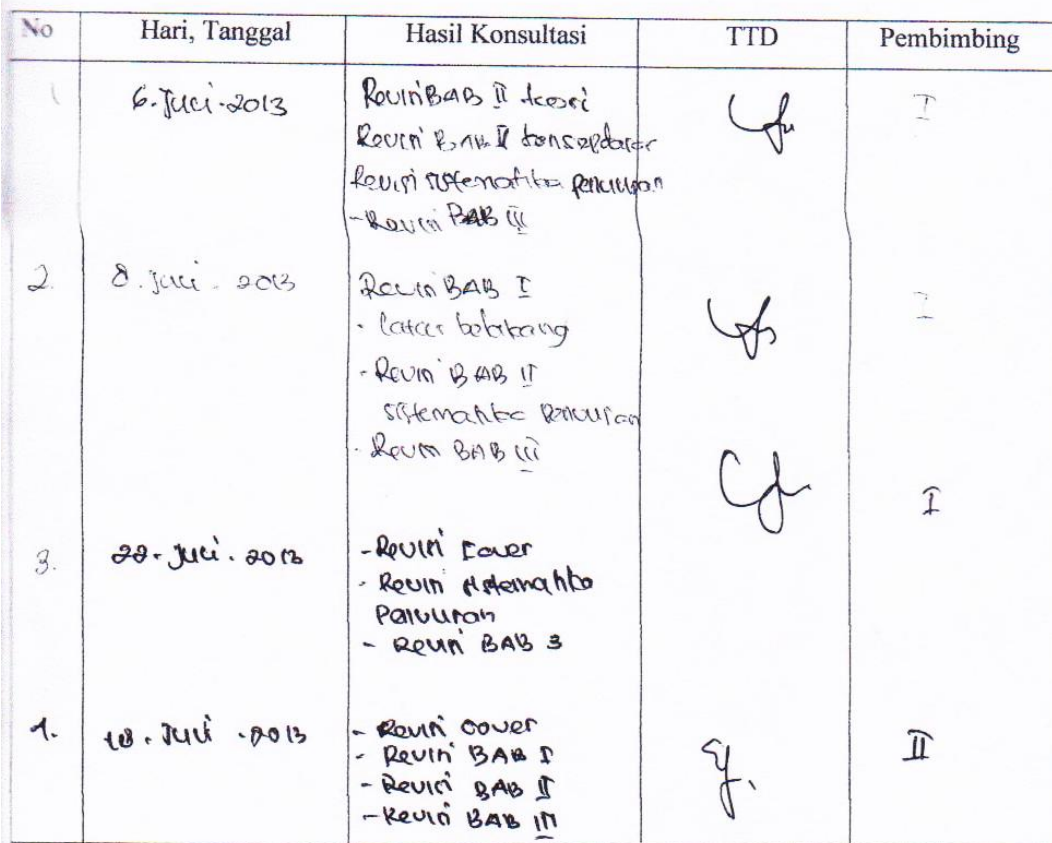 No Hari, Tanggal Hasil Konsultasi TTD Pembimbing
1 6. Juli. 2013 Revisi BAB II teori I
Revisi BAB II konsep dasar
Revisi sistematika penulisan
- Revisi BAB III
2. 8. Juli. 2013 Revisi BAB I I
- latar belakang
- Revisi BAB II
sistematika penulisan
- Revisi BAB III
I
3. 22. Juli. 2013 - Revisi Cover
- Revisi sistematika
Penulisan
- Revisi BAB 3
4. 18. Juli. 2013 - Revisi cover II
- Revisi BAB I
- Revisi BAB II
- Revisi BAB III